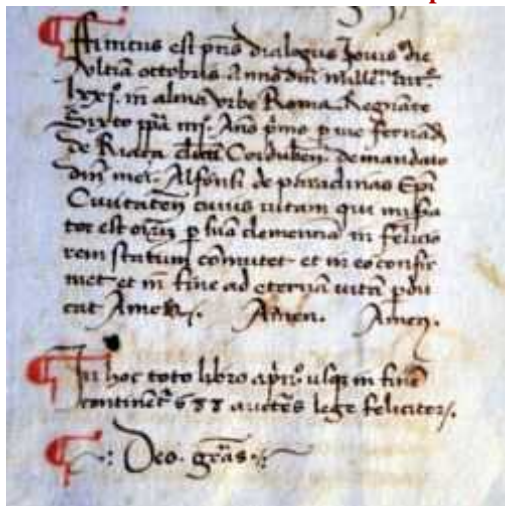 Finitus est pñs dialogus Jouis die
vltiã octobris anno dñi mille.
lxxj. in alma vrbe Roma. Regnãte
Sixto ppã iiij. Año pmo p me fernãdũ
de Riaça Cordubeñ. de mandato
dñi mei. Alfonsi de paradinas Epi
Ciuitateñ cuius vitam qui mißa
tor est oĩum p suã clemenciã in felicio
rem statum cõmutet et in eo confir
met et in fine ad eternã vitã pdu
cat Amen. Amen. Amen.
In hoc toto libro apñº vsq in finẽ
continẽtr 688 auctẽs lege feliciter.
Deo. grãs.